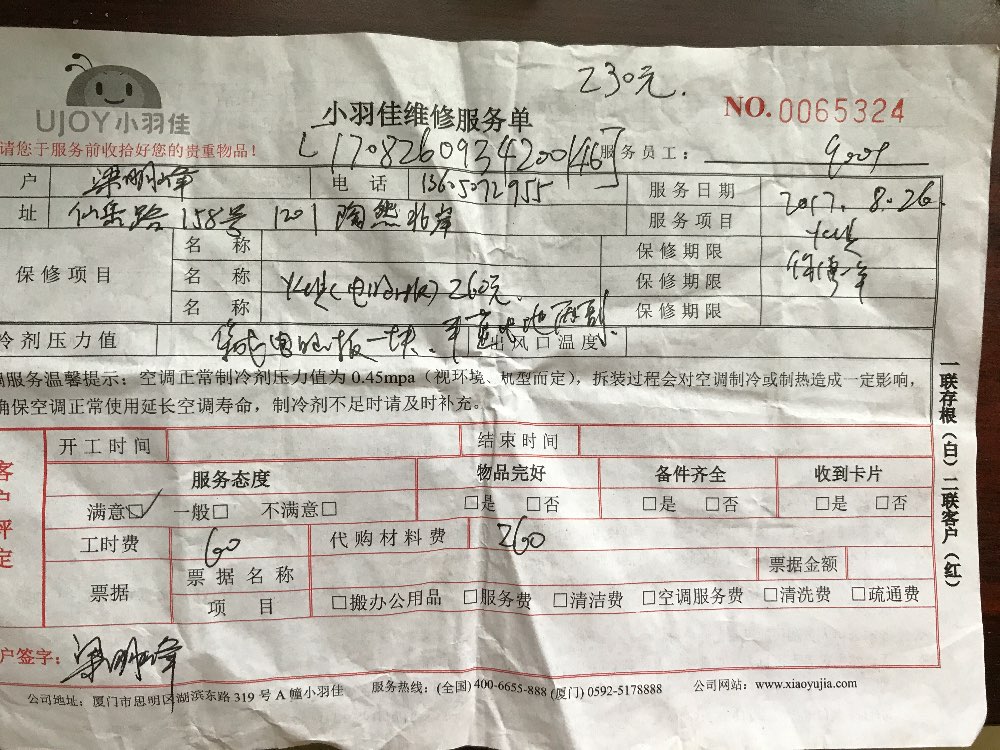 230元.
UJOY小羽佳
小羽佳维修服务单
NO.0065324
请您于服务前收拾好您的贵重物品！
[170826093420014​6] 服务员工：
户 梁明峰 电话 13605072955 服务日期 2017.8.26
址 仙岳路158号1201 陶然 服务项目
保修项目
名称 保修期限
名称 260元. 保修期限
名称 保修期限
冷剂压力值 板一块. 出风口温度
调服务温馨提示：空调正常制冷剂压力值为0.45mpa（视环境、机型而定），拆装过程会对空调制冷或制热造成一定影响，
确保空调正常使用延长空调寿命，制冷剂不足时请及时补充。
一联存根（白）二联客户（红）
客户评定
开工时间 结束时间
服务态度 物品完好 备件齐全 收到卡片
满意☑ 一般□ 不满意□ □是 □否 □是 □否 □是 □否
工时费 60 代购材料费 260
票据 票据名称 票据金额
项目 □搬办公用品 □服务费 □清洁费 □空调服务费 □清洗费 □疏通费
户签字：梁明峰
公司地址：厦门市思明区湖滨东路319号A幢小羽佳 服务热线：(全国)400-6655-888 (厦门)0592-5178888 公司网站：www.xiaoyujia.com